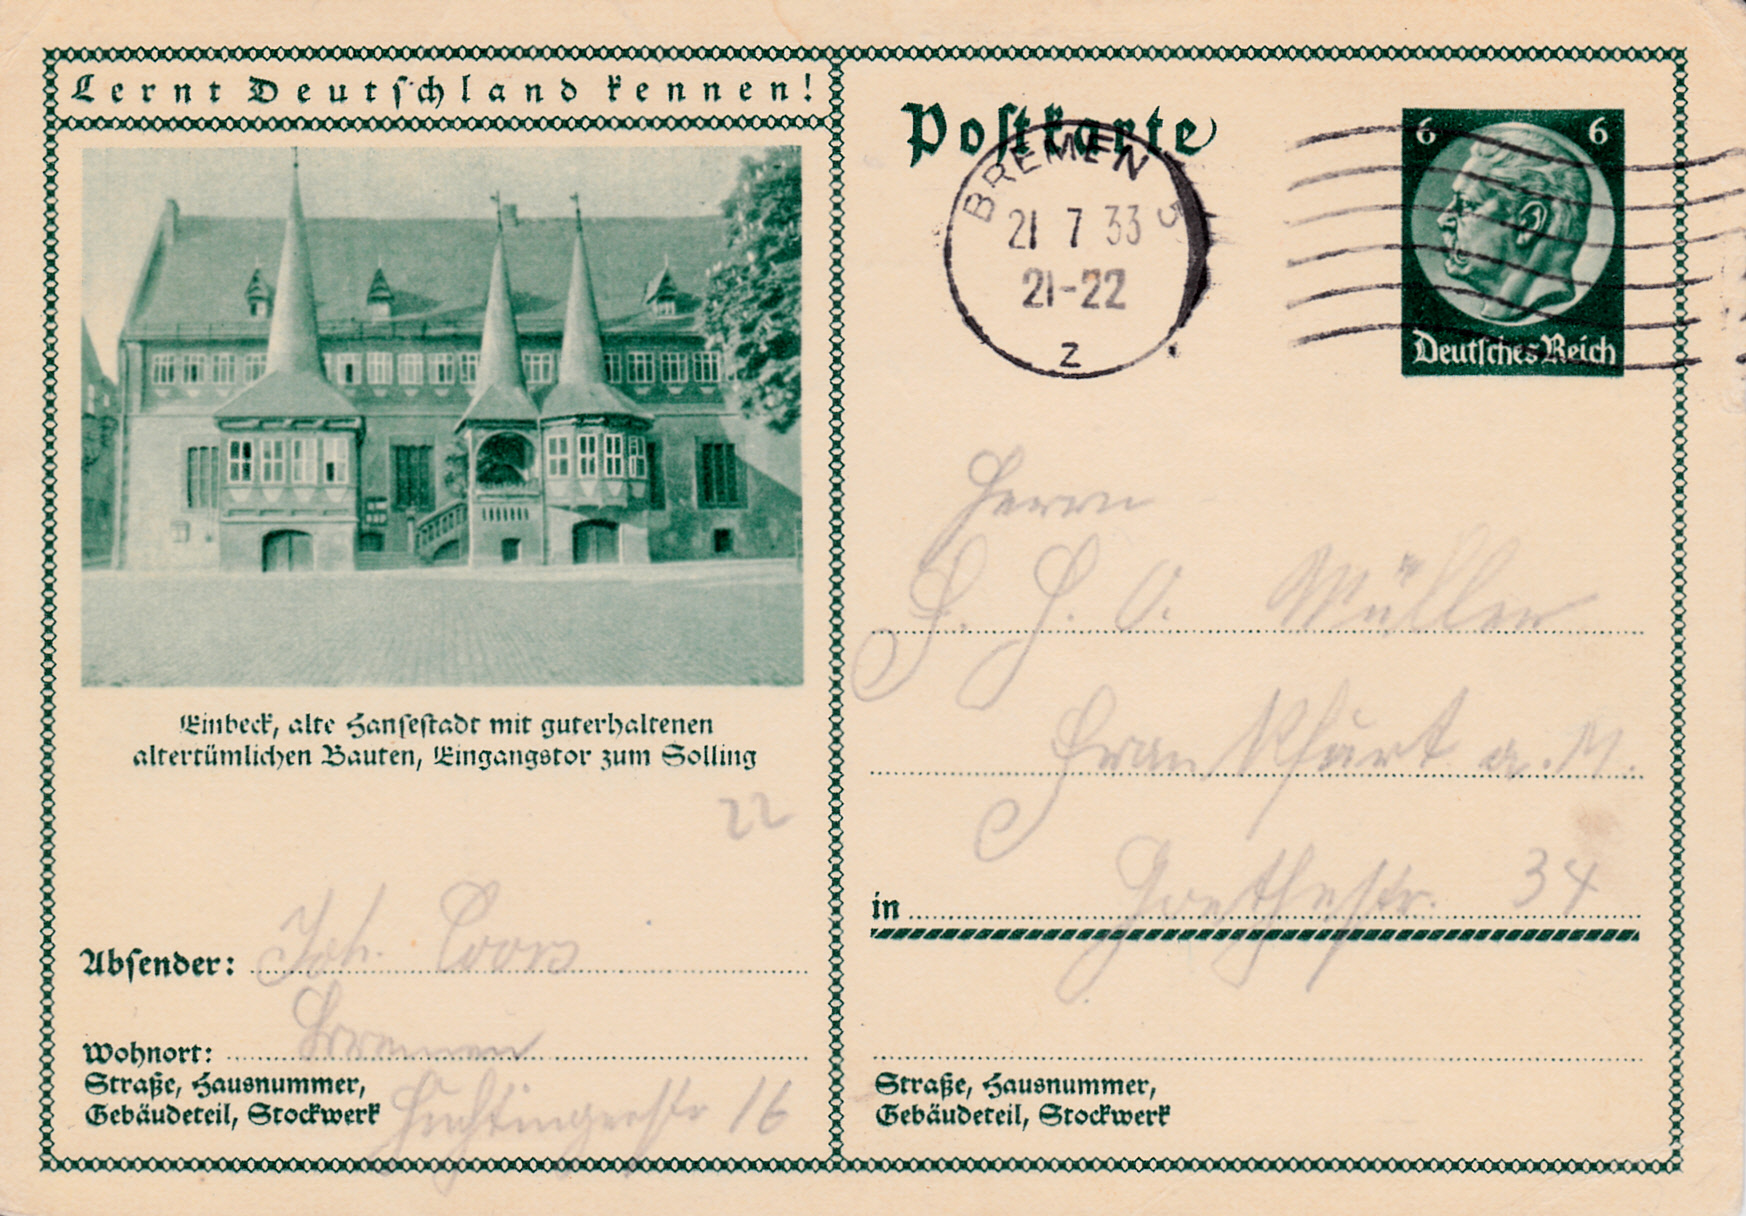 Lernt Deutschland kennen!
Einbeck, alte Hansestadt mit guterhaltenen
altertümlichen Bauten, Eingangstor zum Solling
22
Absender: Joh. Coors
Wohnort: Bremen
Straße, Hausnummer,
Gebäudeteil, Stockwerk Huchtingerstr 16
Postkarte
BREMEN 5
21 7 33
21-22
Z
6 6
Deutsches Reich
Herrn
H. O. Müller
Frankfurt a. M.
in Goethestr. 34
Straße, Hausnummer,
Gebäudeteil, Stockwerk